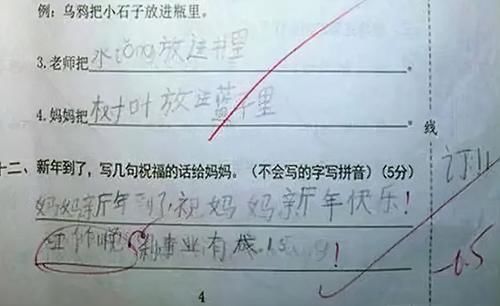 例：乌鸦把小石子放进瓶里。
3.老师把水iǒng放进书里。
4.妈妈把树叶放进蓝子里。
十二、新年到了，写几句祝福的话给妈妈。（不会写的字写拼音）(5分)
妈妈新年到了，祝妈妈新年快乐！
工作 事业有成！
线
订
-0.5
4